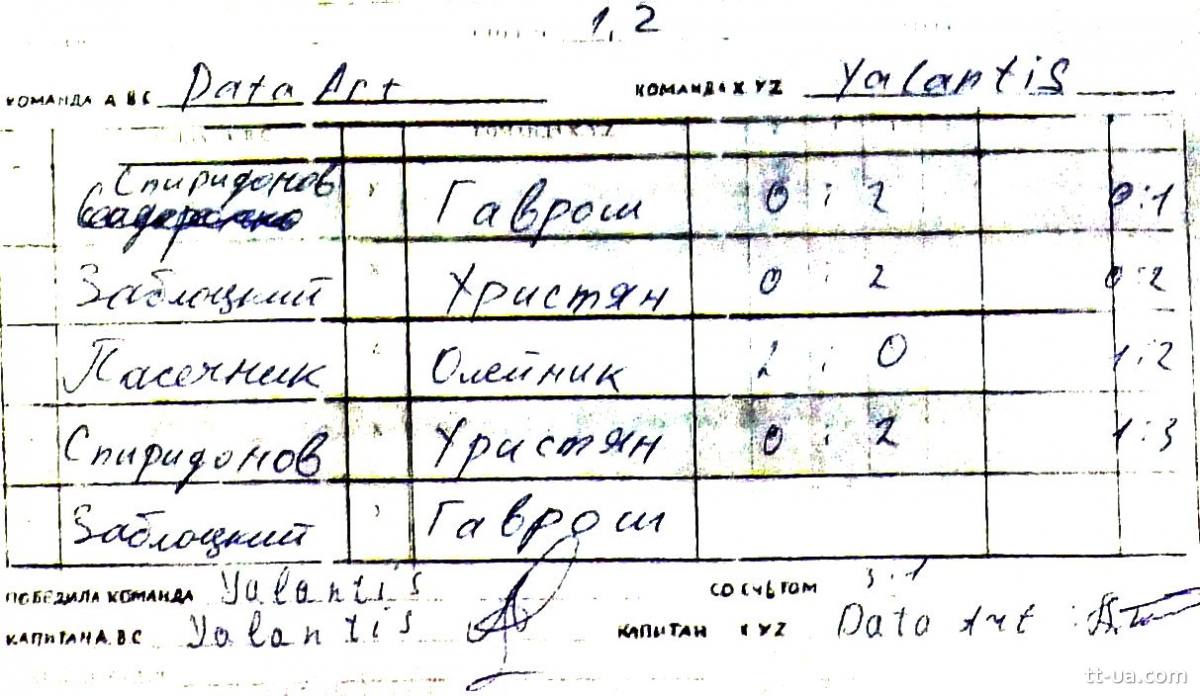 1, 2
КОМАНДА А ВС Data Art КОМАНДА X YZ Yalantis
Спиридонов Гаврош 0 : 2 0:1
Заблоцкий Христян 0 : 2 0:2
Пасечник Олейник 2 : 0 1:2
Спиридонов Христян 0 : 2 1:3
Заблоцкий Гаврош
ПОБЕДИЛА КОМАНДА Yalantis СО СЧЬТОМ 3:1
КАПИТАН А.ВС Yalantis КАПИТАН X YZ Data Art
tt-ua.com